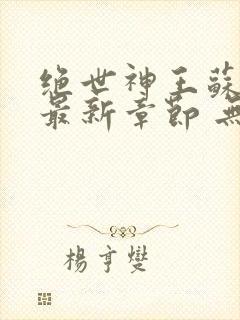 絕世神王蘇
最新章節 無
楊亨燮